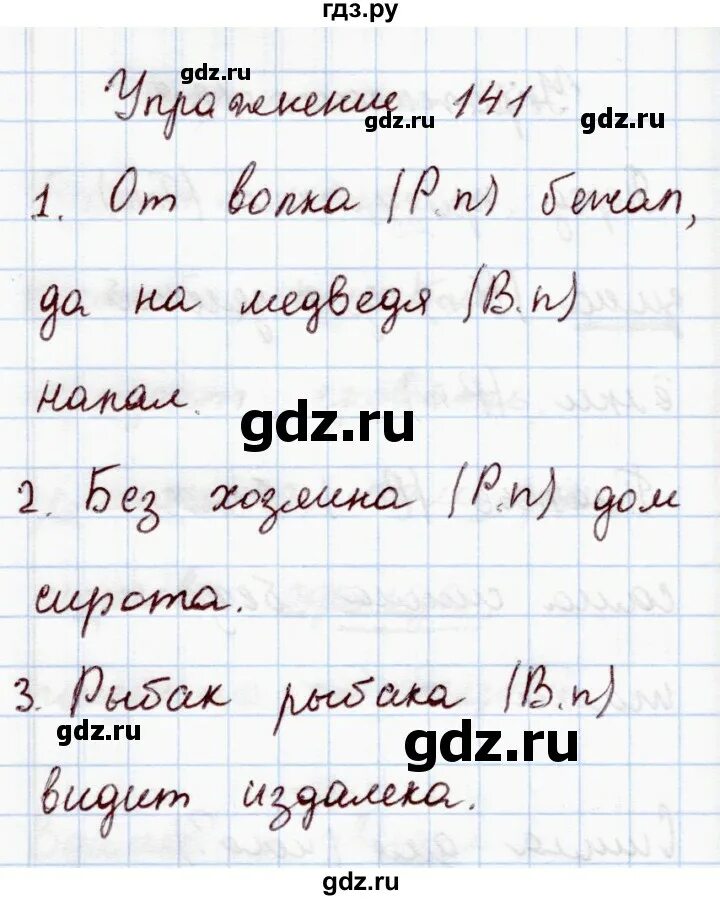 гдз.ру
gdz.ru
Упражнение 141
gdz.ru
gdz.ru
1. От волка (Р.п) бежал,
да на медведя (В.п)
напал.
gdz.ru
2. Без хозяина (Р.п) дом
сирота.
3. Рыбак рыбака (В.п)
gdz.ru
gdz.ru
видит издалека.
gdz.ru